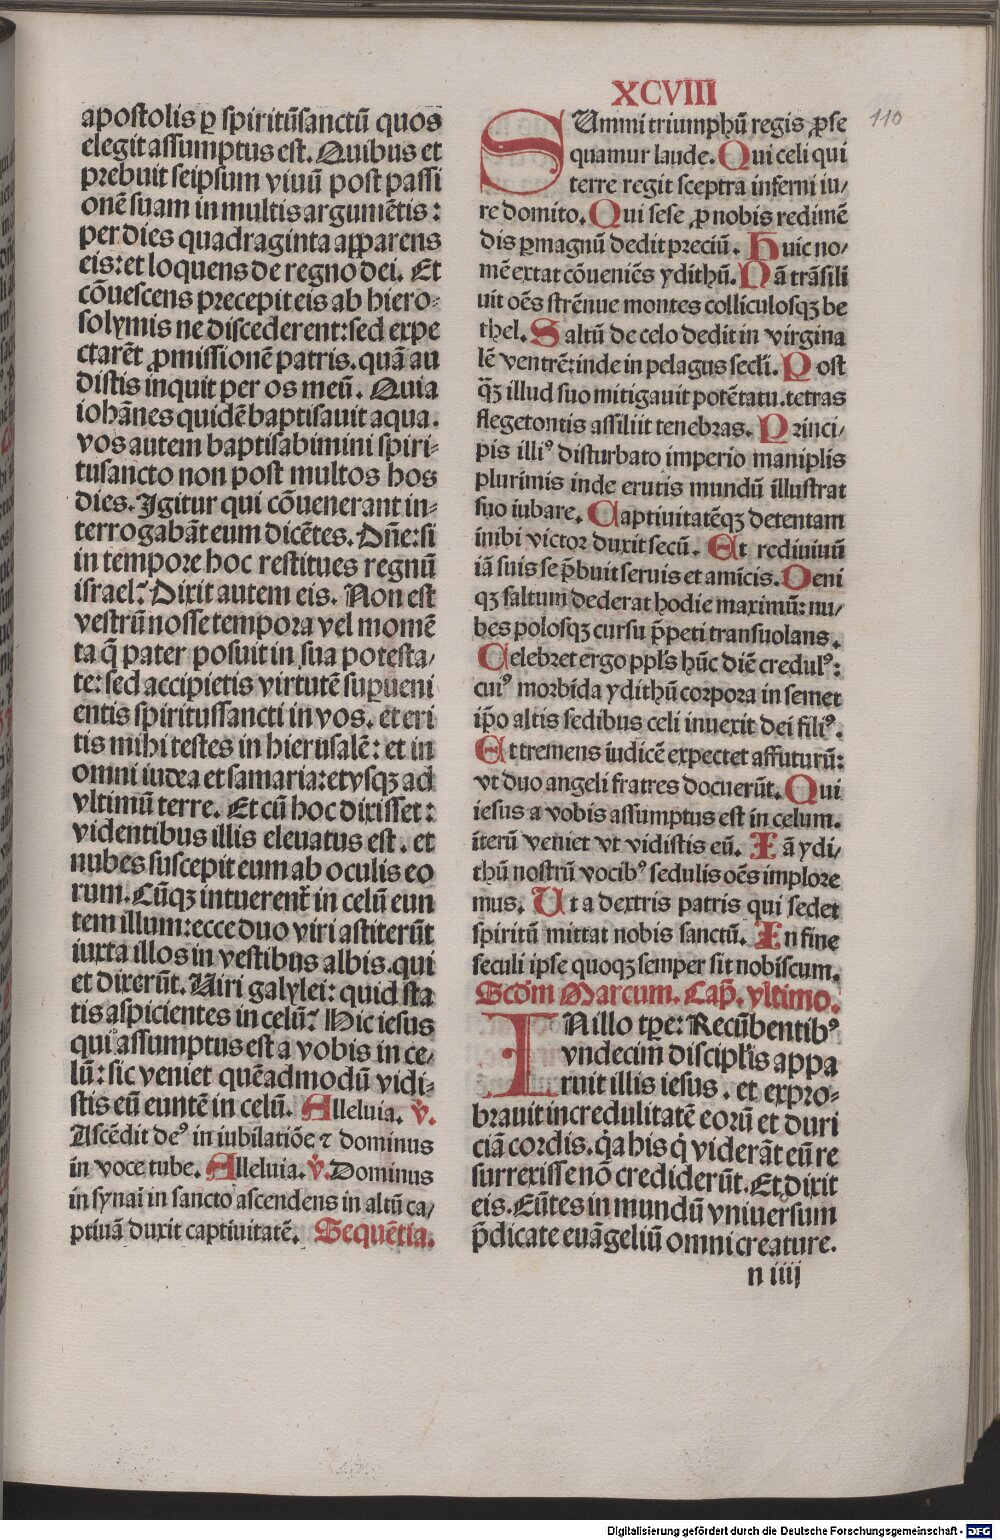 XCVIII
110
apostolis ꝑ spiritūsanctū quos
elegit assumptus est. Quibus et
prebuit seipsum viuū post passi
onē suam in multis argumētis:
per dies quadraginta apparens
eis: et loquens de regno dei. Et
cōuescens precepit eis ab hiero⸗
solymis ne discederent: sed expe
ctarēt ꝓmissionē patris. quā au
distis inquit per os meū. Quia
iohānes quidē baptisauit aqua.
vos autem baptisabimini spiri⸗
tusancto non post multos hos
dies. Igitur qui cōuenerant in⸗
terrogabāt eum dicētes. Dn̄e: si
in tempore hoc restitues regnū
israel? Dixit autem eis. Non est
vestrū nosse tempora vel momē
ta q̄ pater posuit in sua potesta/
te: sed accipietis virtutē suꝑueni
entis spiritussancti in vos. et eri
tis mihi testes in hierusalē: et in
omni iudea et samaria: et vsqꝫ ad
vltimū terre. Et cū hoc dixisset:
videntibus illis eleuatus est. et
nubes suscepit eum ab oculis eo
rum. Cūqꝫ intuerent᷑ in celū eun
tem illum: ecce duo viri astiterūt
iuxta illos in vestibus albis. qui
et dixerūt. Viri galylei: quid sta
tis aspicientes in celū? Hic iesus
qui assumptus est a vobis in ce/
lū: sic veniet quēadmodū vidi⸗
stis eū euntē in celū. Alleluia. v̄.
Ascēdit deꝰ in iubilatiōe ⁊ dominus
in voce tube. Alleluia. v̄. Dominus
in synai in sancto ascendens in altū ca/
ptiuā duxit captiuitatē. Sequētia.
SUmmi triumphū regis ꝓse
quamur laude. Qui celi qui
terre regit sceptra inferni iu/
re domito. Qui sese ꝓ nobis redimē
dis ꝑmagnū dedit preciū. Huic no/
mē extat cōueniēs ydithū. Nā trāsili
uit oēs strēnue montes colliculosqꝫ be
thel. Saltū de celo dedit in virgina
lē ventrē: inde in pelagus secl̄i. Post
q̄ꝫ illud suo mitigauit potētatu. tetras
flegetontis assiliit tenebras. Princi/
pis illiꝰ disturbato imperio maniplis
plurimis inde erutis mundū illustrat
suo iubare. Captiuitatēqꝫ detentam
inibi victor duxit secū. Et rediuiuū
iā suis se p̄buit seruis et amicis. Deni
qꝫ saltum dederat hodie maximū: nu/
bes polosqꝫ cursu p̄peti transuolans.
Celebret ergo ppl̄s hūc diē credulꝰ:
cuiꝰ morbida ydithū corpora in semet
ip̄o altis sedibus celi inuexit dei filiꝰ.
Et tremens iudicē expectet affuturū:
vt duo angeli fratres docuerūt. Qui
iesus a vobis assumptus est in celum.
iterū veniet vt vidistis eū. Iā ydi/
thū nostrū vocibꝰ sedulis oēs implore
mus. Ut a dextris patris qui sedet
spiritū mittat nobis sanctū. In fine
seculi ipse quoqꝫ semper sit nobiscum.
Scd̄m Marcum. Cap̄. vltimo.
IN illo tp̄e: Recūbentibꝰ
vndecim discipl̄is appa
ruit illis iesus. et expro⸗
brauit incredulitatē eorū et duri
ciā cordis. q̇a his q̇ viderāt eū re
surrexisse nō crediderūt. Et dixit
eis. Eūtes in mundū vniuersum
p̄dicate euāgeliū omni creature.
n iiij
Digitalisierung gefördert durch die Deutsche Forschungsgemeinschaft - DFG